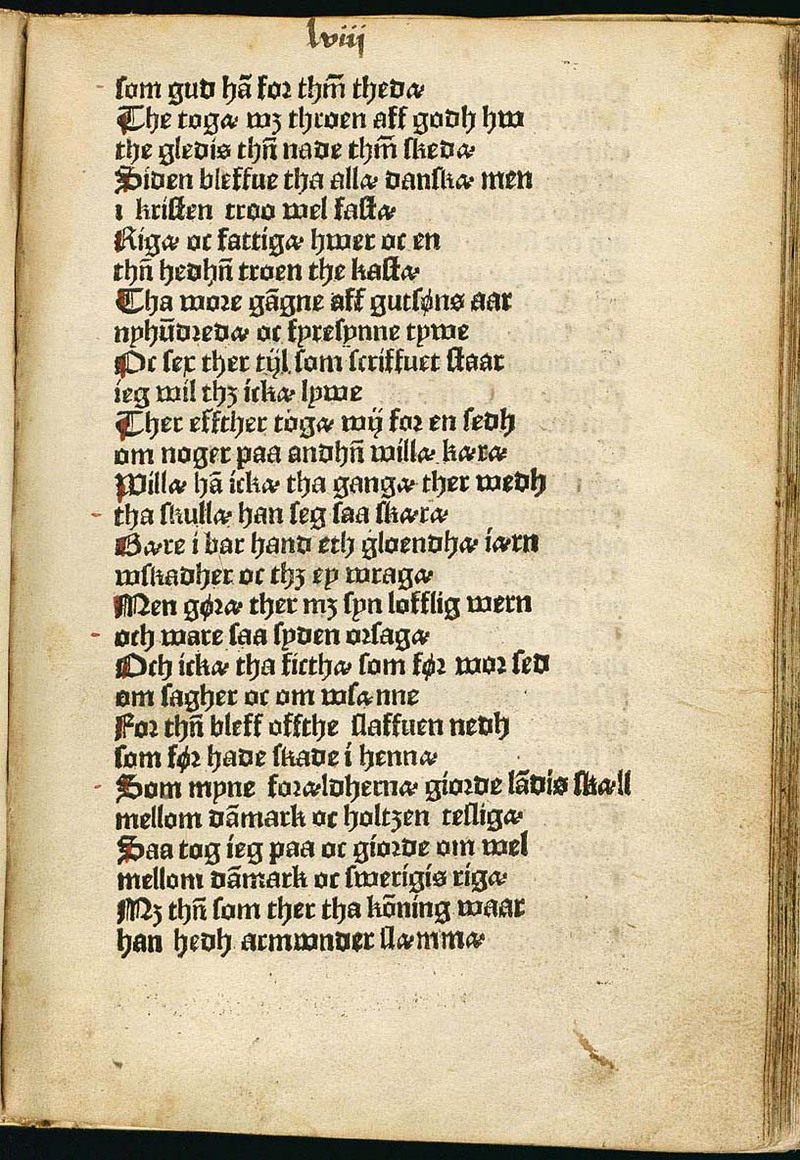 lviii
som gud hā for thm̄ thedæ
The togæ mꝫ throen aff godh hw
the gledis thn̄ nade thm̄ skedæ
Siden bleffue tha allæ danskæ men
i kristen troo wel fastæ
Rigæ oc fattigæ hwer oc en
thn̄ hedhn̄ troen the kastæ
Tha wore gāgne aff gutsøns aar
nyhūdredæ oc fyresynne tywe
Oc sex ther tijl som scriffuet staar
ieg wil thꝫ ickæ lywe
Ther effther togæ wij for en sedh
om noger paa andhn̄ willæ kæræ
Willæ hā ickæ tha gangæ ther wedh
tha skullæ han seg saa skæræ
Bære i bar hand eth gloendhæ iærn
wskadher oc thꝫ ey wragæ
Men gøræ ther mꝫ syn lofflig wern
och ware saa syden orsagæ
Och ickæ tha ficthæ som før wor sed
om sagher oc om wsænne
For thn̄ bleff offthe slaffuen nedh
som før hade skade i hennæ
Som myne forældhernæ giorde lādis skæll
mellom dāmark oc holtzen tesligæ
Saa tog ieg paa oc giorde om wel
mellom dāmark oc swerigis rigæ
Mꝫ thn̄ som ther tha kōning waar
han hedh armwnder slæmmæ